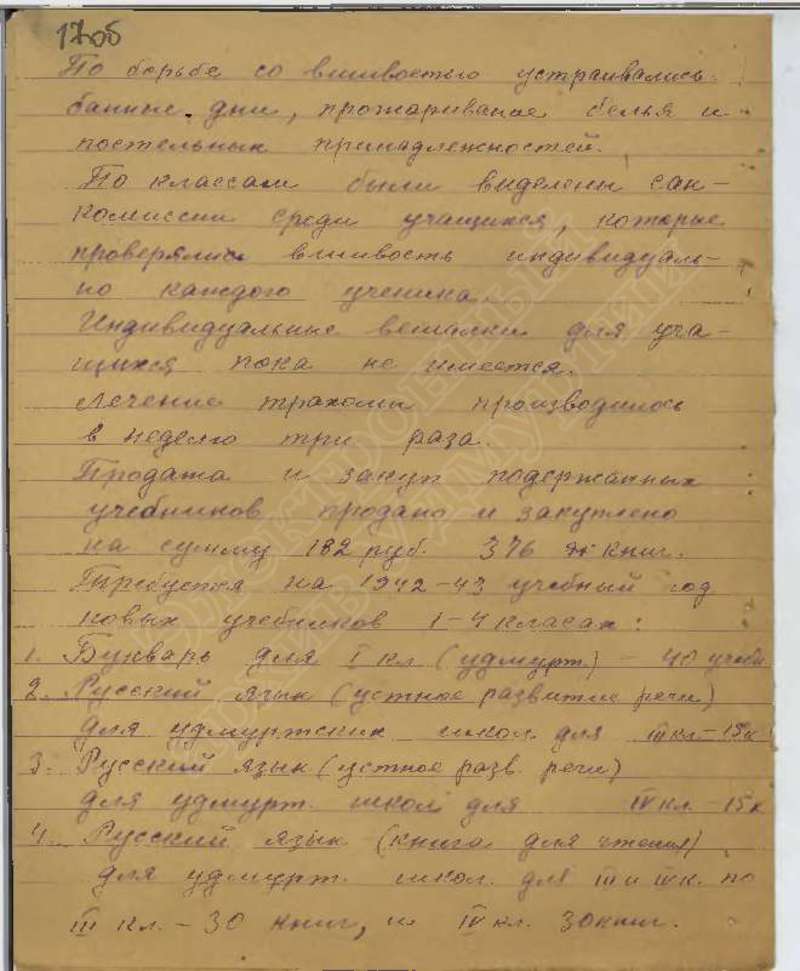 17об
По борьбе со вшивостью устраивались
банные дни, прожаривание белья и
постельных принадлежностей.
По классам были виделены сан-
комиссии среди учащихся, которые
проверялись вшивость индивидуаль-
но каждого ученика.
Индивидуальные вешалки для уча-
щихся пока не имеется.
Лечение трахомы производилось
в неделю три раза.
Продажа и закуп подержанных
учебников продано и закуплено
на сумму 182 руб. 376 книг.
Требуется на 1942-43 учебный год
новых учебников 1-4 класах:
1. Букварь для I кл. (удмурт.) - 40 учебн.
2. Русский язык (устное развитие речи)
для удмуртских школ для III кл - 15к
3. Русский язык (устное разв. речи)
для удмурт. школ для IV кл. - 15к
4. Русский язык (книга для чтения)
для удмурт. школ. для III и IV к. по
III кл. - 30 книг, и IV кл. 30 книг.